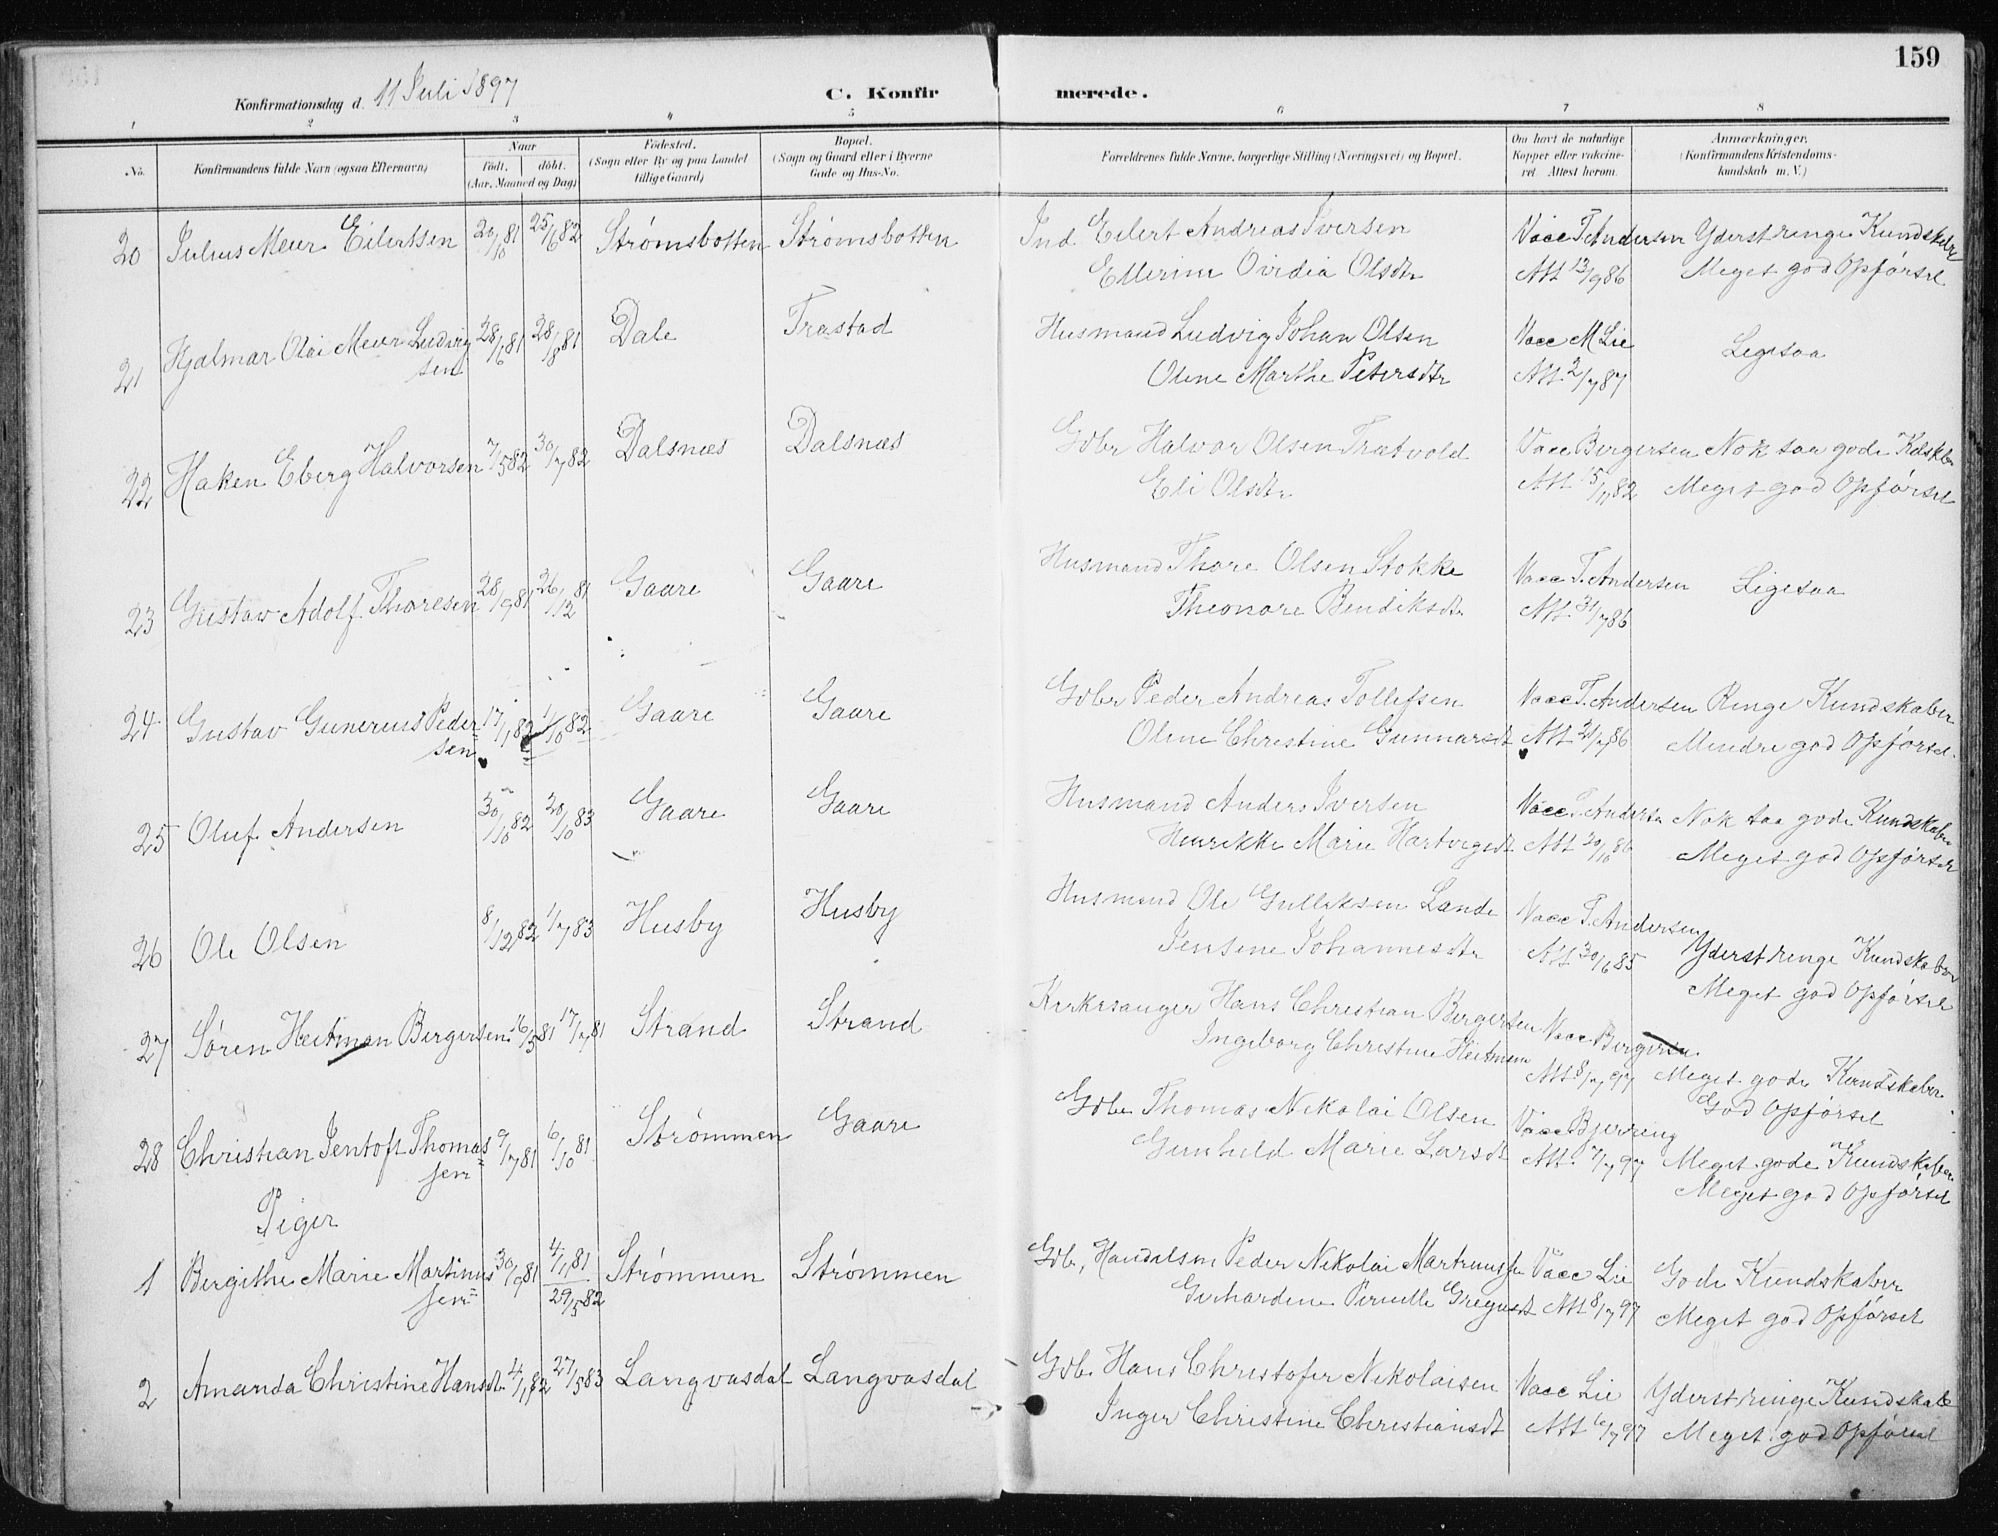 159
Konfirmationsdag d. 11 Juli 1897 C. Konfir merede.
1 2 3 4 5 6 7 8
No. Konfirmandens fulde Navn (ogsaa Efternavn) Naar født. døbt. (Aar, Maaned og Dag) Fødested. (Sogn eller By og paa Landet tillige Gaard) Bopæl. (Sogn og Gaard eller i Byerne Gade og Hus-No. Forældrenes fulde Navne, borgerlige Stilling (Næringsvei) og Bopæl. Om havt de naturlige Kopper eller vakcineret. Attest herom. Anmærkninger. (Konfirmandens Kristendomskundskab m. V.)
20 Julius Meier Eilertsen 20/10 81 25/6 82 Strømsbotten Strømsbotten Ind Eilert Andreas Iversen Vacc T. Andersen Yderst ringe Kundskaber
Ellerine Ovidia Olsdtr Att 13/9 86 Meget god Opførsel
21 Hjalmar Olai Meier Ludvigsen 28/6 81 28/8 81 Dale Trastad Husmand Ludvig Johan Olsen Vacc M Lie Ligesaa
Oline Marthe Petersdtr Att. 2/7 87
22 Haken Eberg Halvorsen 7/5 82 30/7 82 Dalsnæs Dalsnæs Gdbr Halvor Olsen Tratvold Vacc Bergersen Nok saa gode Kdskbr
Eli Olsdtr Att 15/11 82 Meget god Opførsel
23 Gustav Adolf Thoresen 28/9 81 26/12 81 Gaare Gaare Husmand Thore Olsen Stokke Vacc T. Andersen Ligesaa
Theonore Bendiksdtr Att. 31/7 86
24 Gustav Gunerius Pedersen 17/1 82 1/10 82 Gaare Gaare Gdbr Peder Andreas Tollefsen Vacc T. Andersen Ringe Kundskaber
Oline Christine Gunnarsdt Att 21/7 86 Mindre god Opførsel.
25 Oluf Andersen 30/10 82 20/10 83 Gaare Gaare Husmand Anders Iversen Vacc T. Andersn Nok saa gode Kundskaber
Henrikke Marie Hartvigsdt Att 20/10 86 Meget god Opførsel
26 Ole Olsen 8/12 82 1/7 83 Husby Husby Husmand Ole Gulliksen Lande Vacc T. Andersen
Jensine Johannesdtr Att 30/6 85 Yderst ringe Kundskaber
Meget god Opførsel
27 Søren Heitman Bergersen 16/5 81 17/7 81 Strand Strand Kirkesanger Hans Christian Bergersen Vacc Bergersen
Ingeborg Christine Heitmann Att 8/7 97 Meget gode Kundskaber
God Opførsel
28 Christian Jentoft Thomassen 9/7 81 6/10 81 Strømmen Gaare Gdbr Thomas Nikolai Olsen Vacc Bjerring
Gunhild Marie Larsdt Att. 7/7 97 Meget gode Kundskaber
Meget god Opførsel
Piger
1 Bergithe Marie Martinussen 30/9 81 4/11 81 29/5 82 Strømmen Strømmen Gdbr, Handelsm Peder Nikolai Martinussen Vacc Lie Gode Kundskaber
Gerhardine Pernille Gregusdt Att 8/7 97 Meget god Opførsel
2 Amanda Christine Hansdtr 4/1 82 27/5 83 Langvasdal Langvasdal Gdbr Hans Christofer Nikolaisen Vacc Lie Yderst ringe Kundskab
Inger Christine Christiansdt Att 10/7 97 Meget god Opførsel